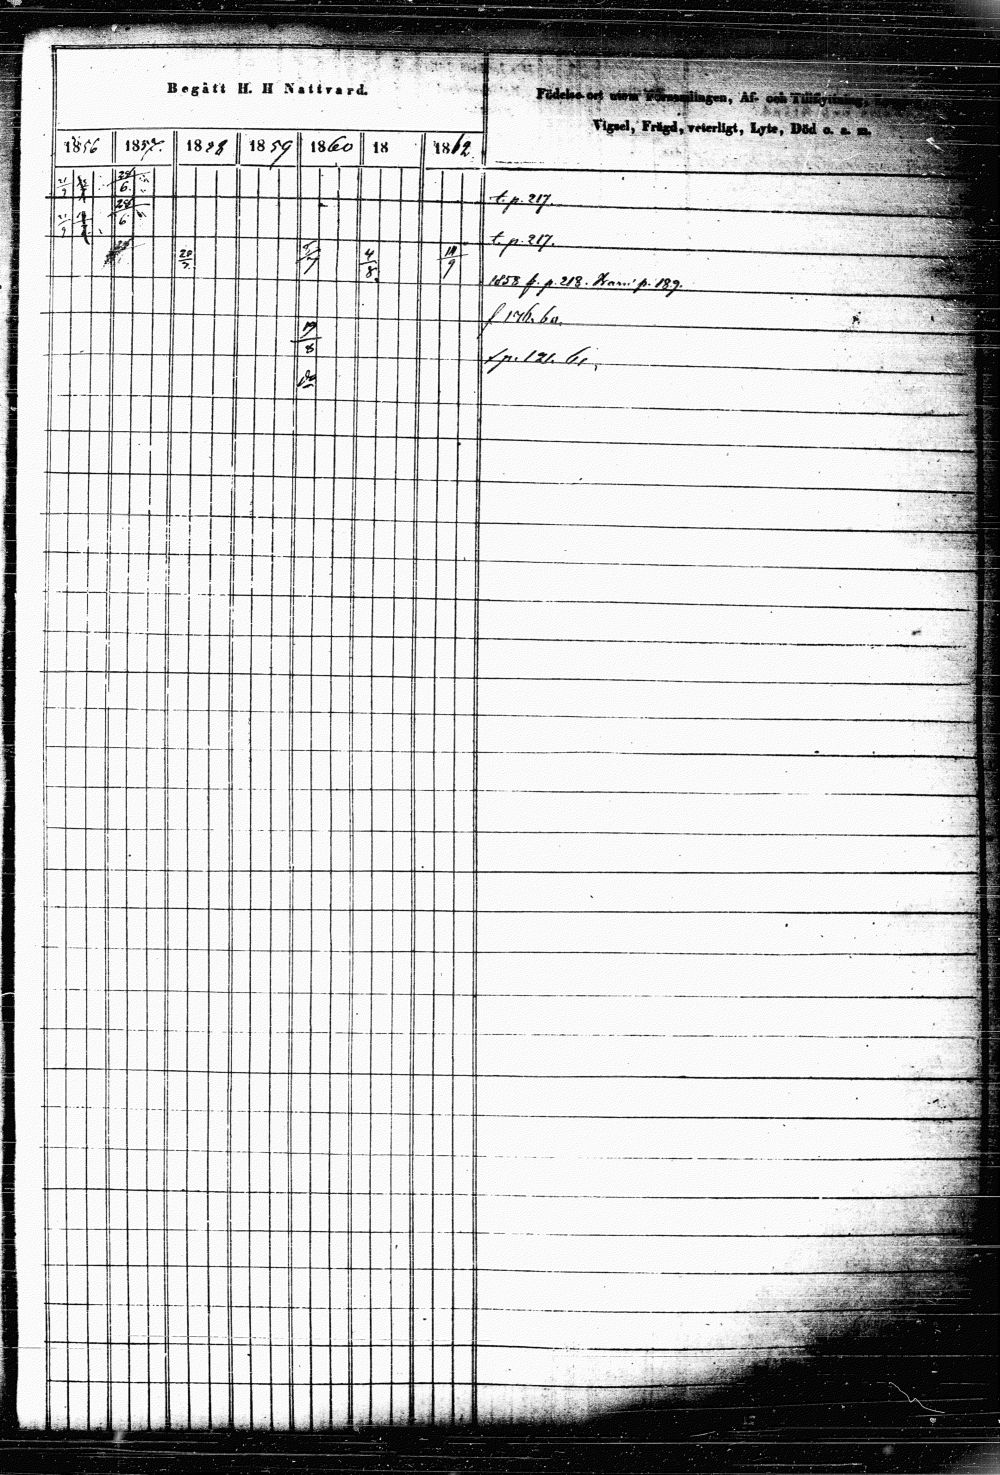 Begått H. H Nattvard.
Födelse-ort utom Församlingen, Af- och Tillflyttning,
Vigsel, Frägd, veterligt, Lyte, Död o. a. m.
1856 1857. 1858 1859 1860 18 1862
21/9 28/6
t. p. 217.
21/9 28/6
t. p. 217.
5/7 4/8 19/9
1858 f. p. 218. p. 189.
f 176. 60.
19/8
f p. 121. 61.